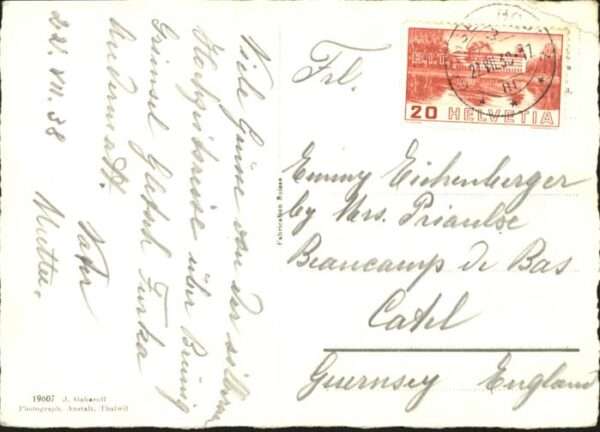 Viele Grüsse von der silbern
Hochzeitsreise über Brünig
Grimsel Gletsch Furka
Andermatt.
Vater
Mutter.
22. VII. 38
Frl.
Emmy Eichenberger
by Mrs. Priaulx
Beaucamp de Bas
Catel
Guernsey England
B.I.T.
20 HELVETIA
Fabrication Suisse
19607 J. Gaberell
Photograph. Anstalt, Thalwil